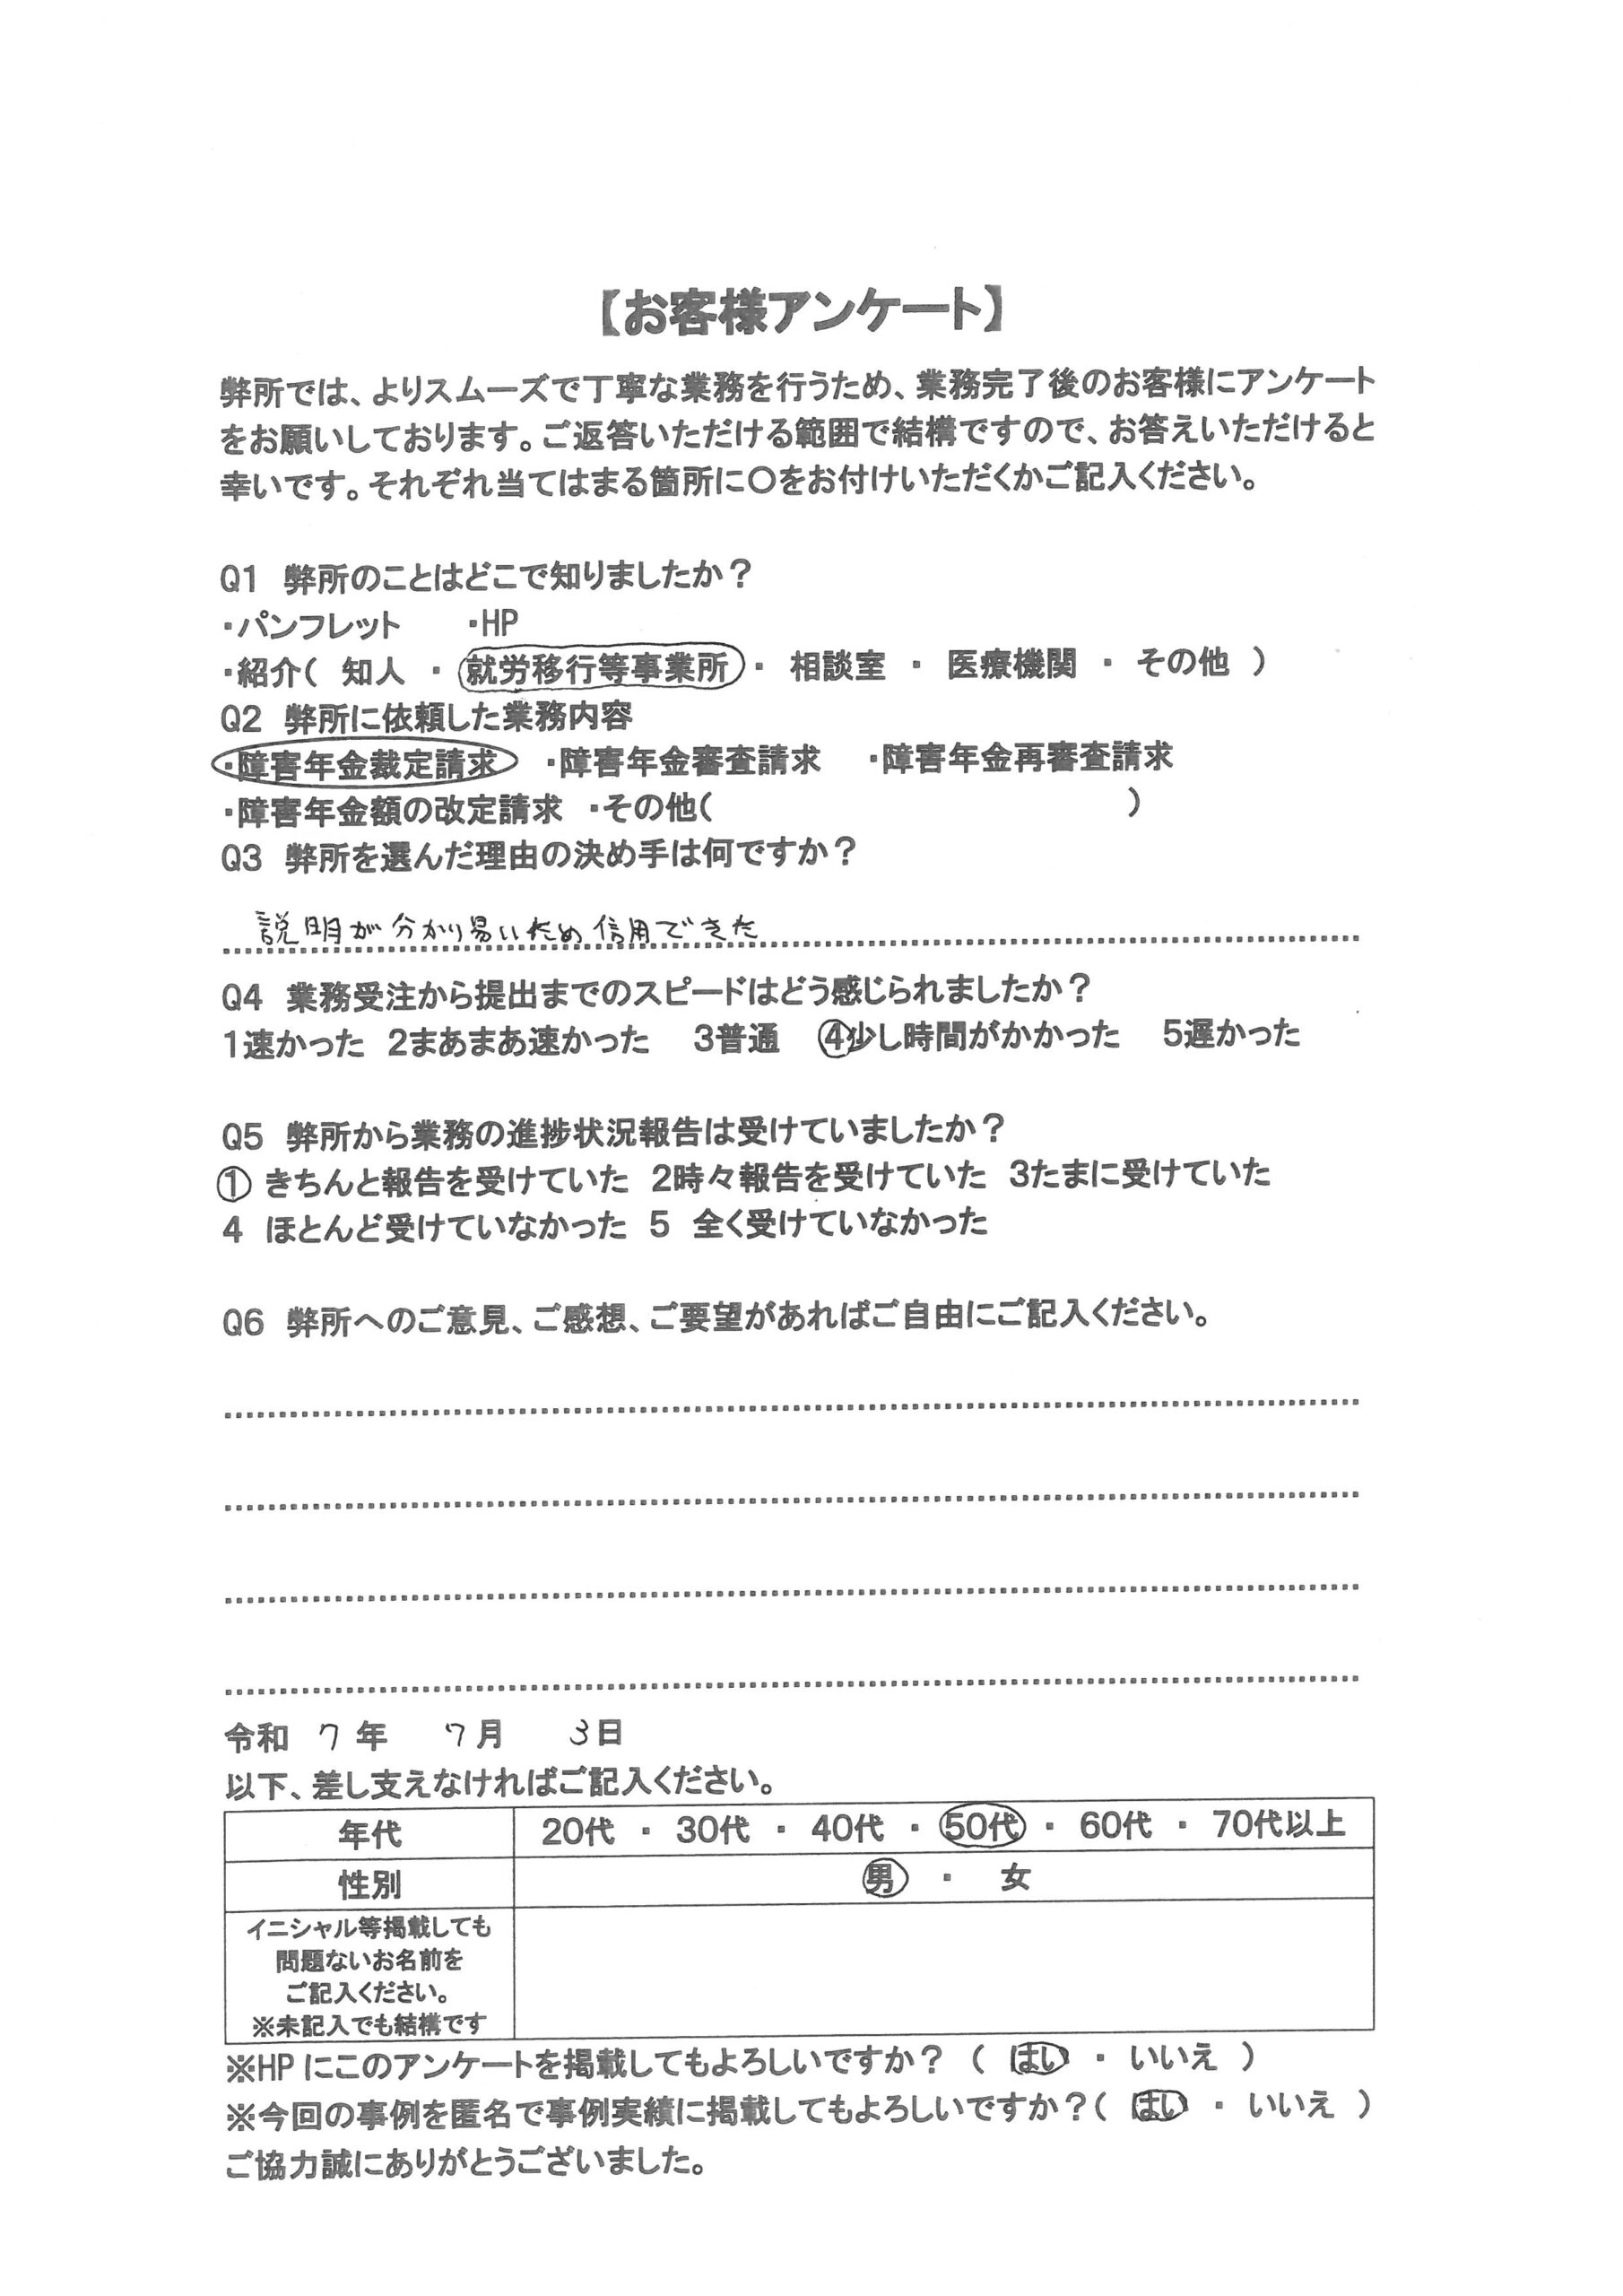 【お客様アンケート】
弊所では、よりスムーズで丁寧な業務を行うため、業務完了後のお客様にアンケート
をお願いしております。ご返答いただける範囲で結構ですので、お答えいただけると
幸いです。それぞれ当てはまる箇所に〇をお付けいただくかご記入ください。
Q1 弊所のことはどこで知りましたか？
・パンフレット ・HP
・紹介（ 知人 ・ 就労移行等事業所 ・ 相談室 ・ 医療機関 ・ その他 ）
Q2 弊所に依頼した業務内容
・障害年金裁定請求 ・障害年金審査請求 ・障害年金再審査請求
・障害年金額の改定請求 ・その他（ ）
Q3 弊所を選んだ理由の決め手は何ですか？
説明が分かり易いため信用できた
Q4 業務受注から提出までのスピードはどう感じられましたか？
1速かった 2まあまあ速かった 3普通 4少し時間がかかった 5遅かった
Q5 弊所から業務の進捗状況報告は受けていましたか？
① きちんと報告を受けていた 2時々報告を受けていた 3たまに受けていた
4 ほとんど受けていなかった 5 全く受けていなかった
Q6 弊所へのご意見、ご感想、ご要望があればご自由にご記入ください。
令和 7 年 7 月 3 日
以下、差し支えなければご記入ください。
年代 20代 ・ 30代 ・ 40代 ・ 50代 ・ 60代 ・ 70代以上
性別 男 ・ 女
イニシャル等掲載しても
問題ないお名前を
ご記入ください。
※未記入でも結構です
※HPにこのアンケートを掲載してもよろしいですか？（ はい ・ いいえ ）
※今回の事例を匿名で事例実績に掲載してもよろしいですか？（ はい ・ いいえ ）
ご協力誠にありがとうございました。